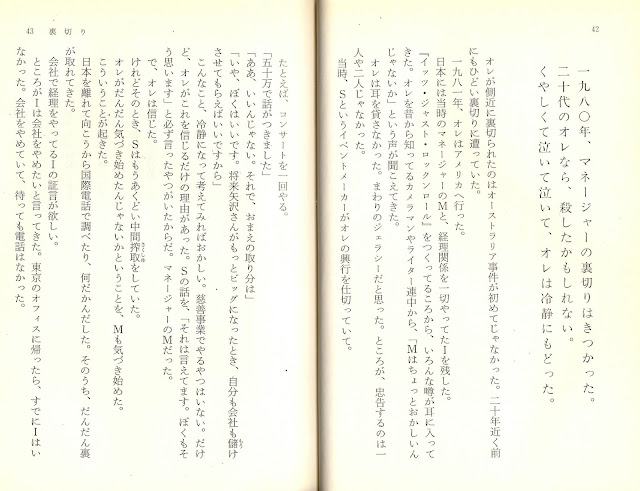 42
一九八〇年、マネージャーの裏切りはきつかった。
二十代のオレなら、殺したかもしれない。
くやしくて泣いて泣いて、オレは冷静にもどった。
オレが側近に裏切られたのはオーストラリア事件が初めてじゃなかった。二十年近く前
にもひどい裏切りに遭っていた。
一九八一年、オレはアメリカへ行った。
日本には当時のマネージャーのMと、経理関係を一切やってたIを残した。
『イッツ・ジャスト・ロックンロール』をつくってるころから、いろんな噂が耳に入って
きた。オレを昔から知ってるカメラマンやライター連中から、「Mはちょっとおかしいん
じゃないか」という声が聞こえてきた。
オレは耳を貸さなかった。まわりのジェラシーだと思った。ところが、忠告するのは一
人や二人じゃなかった。
当時、Sというイベントメーカーがオレの興行を仕切っていて。
43 裏切り
たとえば、コンサートを一回やる。
「五十万で話がつきました」
「ああ、いいんじゃない。それで、おまえの取り分は」
「いや、ぼくはいいです。将来矢沢さんがもっとビッグになったとき、自分も会社も儲け
もう
させてもらえばいいですから」
こんなこと、冷静になって考えてみればおかしい。慈善事業でやるやつはいない。だけ
ど、オレがこれを信じるだけの理由があった。Sの話を、「それは言えてます。ぼくもそ
う思います」と必ず言ったやつがいたからだ。マネージャーのMだった。
で、オレは信じた。
けれどそのとき、Sはもうあくどい中間搾取をしていた。
さくしゅ
オレがだんだん気づき始めたんじゃないかということを、Mも気づき始めた。
こういうことが起きた。
日本を離れて向こうから国際電話で調べたり、何だかんだした。そのうち、だんだん裏
が取れてきた。
会社で経理をやってるIの証言が欲しい。
ところがIは会社をやめたいと言ってきた。東京のオフィスに帰ったら、すでにIはい
なかった。会社をやめていて、待っても電話はなかった。